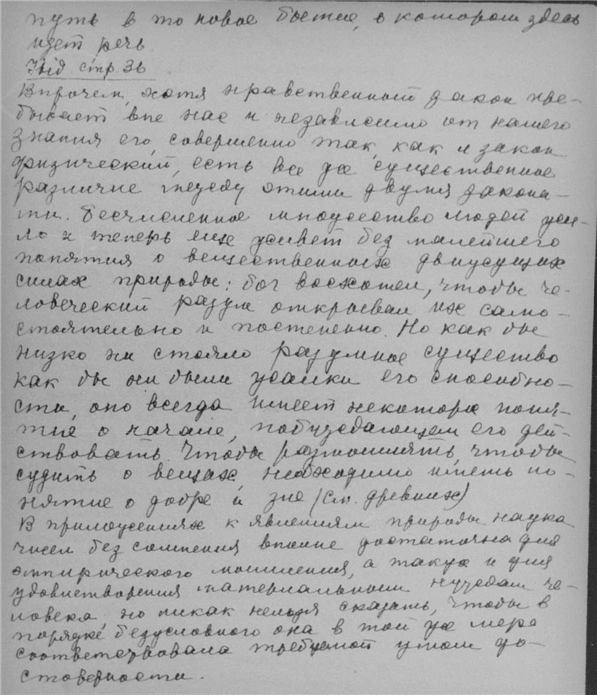 путь в то новое бытие, о котором здесь
идет речь.
Ibid стр. 36
Впрочем хотя нравственный закон пре-
бывает вне нас и независимо от нашего
знания его, совершенно так, как и закон
физический, есть все же существенное
различие между этими двумя закона-
ми. Бесчисленное множество людей жи-
ло и теперь еще живет без малейшего
понятия о вещественных движущих
силах природы: бог восхотел, чтобы че-
ловеческий разум открывал их само-
стоятельно и постепенно. Но как бы
низко ни стояло разумное существо
как бы ни были жалки его способно-
сти, оно всегда имеет некоторое поня-
тие о начале, побуждающем его дей-
ствовать. Чтобы размышлять, чтобы
судить о вещах, необходимо иметь по-
нятие о добре и зле (см. древних)
В приложениях к явлениям природы наука
чисел без сомнения вполне достаточна для
эмпирического мышления, а также и для
удовлетворения материальным нуждам че-
ловека но никак нельзя сказать, чтобы в
порядке безусловного она в той же мере
соответствовала требуемой умом до-
стоверности.